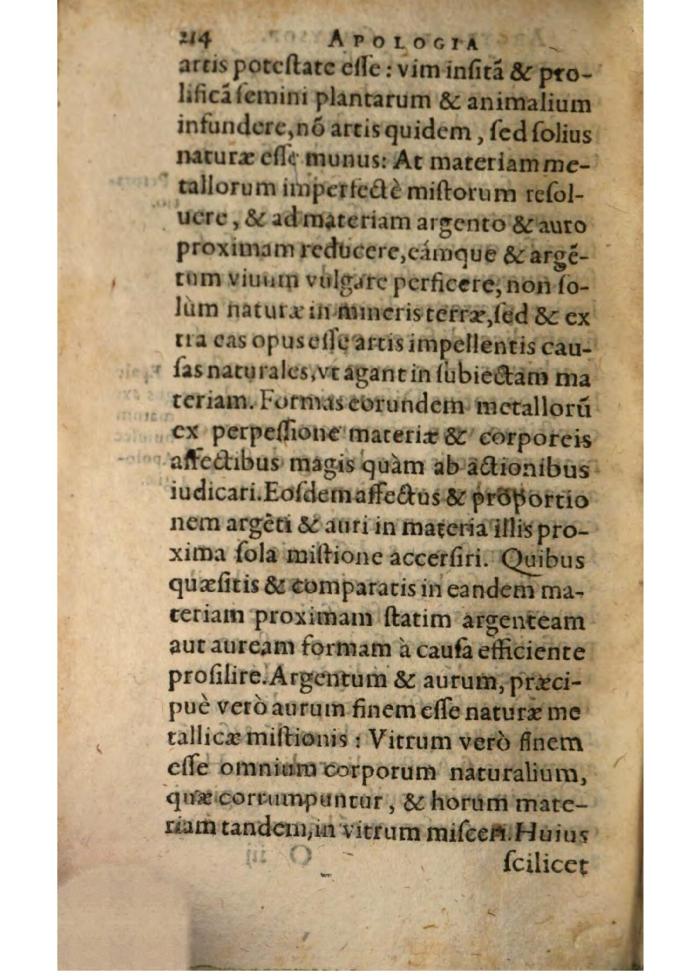 214 APOLOGIA
artis poteſtate eſſe : vim inſitã & pro-
lificã ſemini plantarum & animalium
infundere, nõ artis quidem , ſed ſolius
naturæ eſſe munus: At materiam me-
tallorum imperfectè miſtorum reſol-
uere , & ad materiam argento & auro
proximam reducere, eámque & argẽ-
tum viuum vulgare perficere, non ſo-
lùm naturæ in mineris terræ, ſed & ex
tra eas opus eſſe artis impellentis cau-
ſas naturales, vt agant in ſubiectam ma
teriam. Formas eorundem metallorũ
ex perpeſſione materiæ & corporeis
affectibus magis quàm ab actionibus
iudicari. Eoſdem affectus & proportio
nem argẽti & auri in materia illis pro-
xima ſola miſtione accerſiri. Quibus
quæſitis & comparatis in eandem ma-
teriam proximam ſtatim argenteam
aut auream formam à cauſa efficiente
proſilire. Argentum & aurum, præci-
puè verò aurum finem eſſe naturæ me
tallicæ miſtionis : Vitrum verò finem
eſſe omnium corporum naturalium,
quæ corrumpuntur , & horum mate-
riam tandem, in vitrum miſceri. Huius
ſcilicet